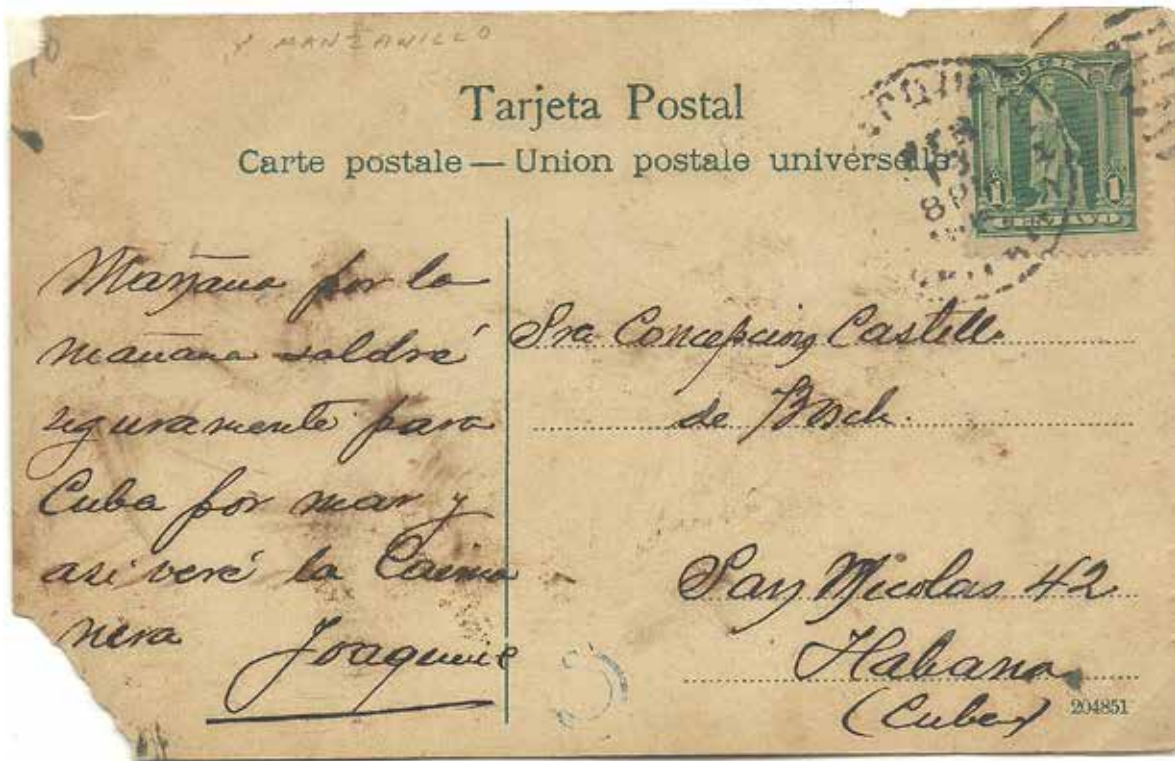 Y MANZANILLO
Tarjeta Postal
Carte postale — Union postale universelle
CUBA
1 1
CENTAVO
8 PM
Mañana por la
mañana saldré
seguramente para
Cuba por mar y
asi veré la Caima
nera
Joaquin
Sra Concepcion Castello
de Bosch.
San Nicolas 42
Habana
(Cuba)
204851